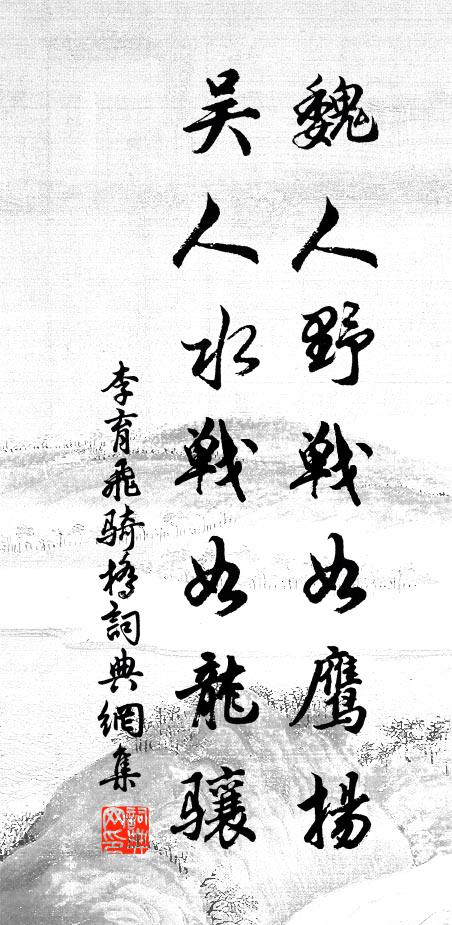 魏人野戰如鷹揚
吳人水戰如龍驤
李育飛騎橋詞典網集